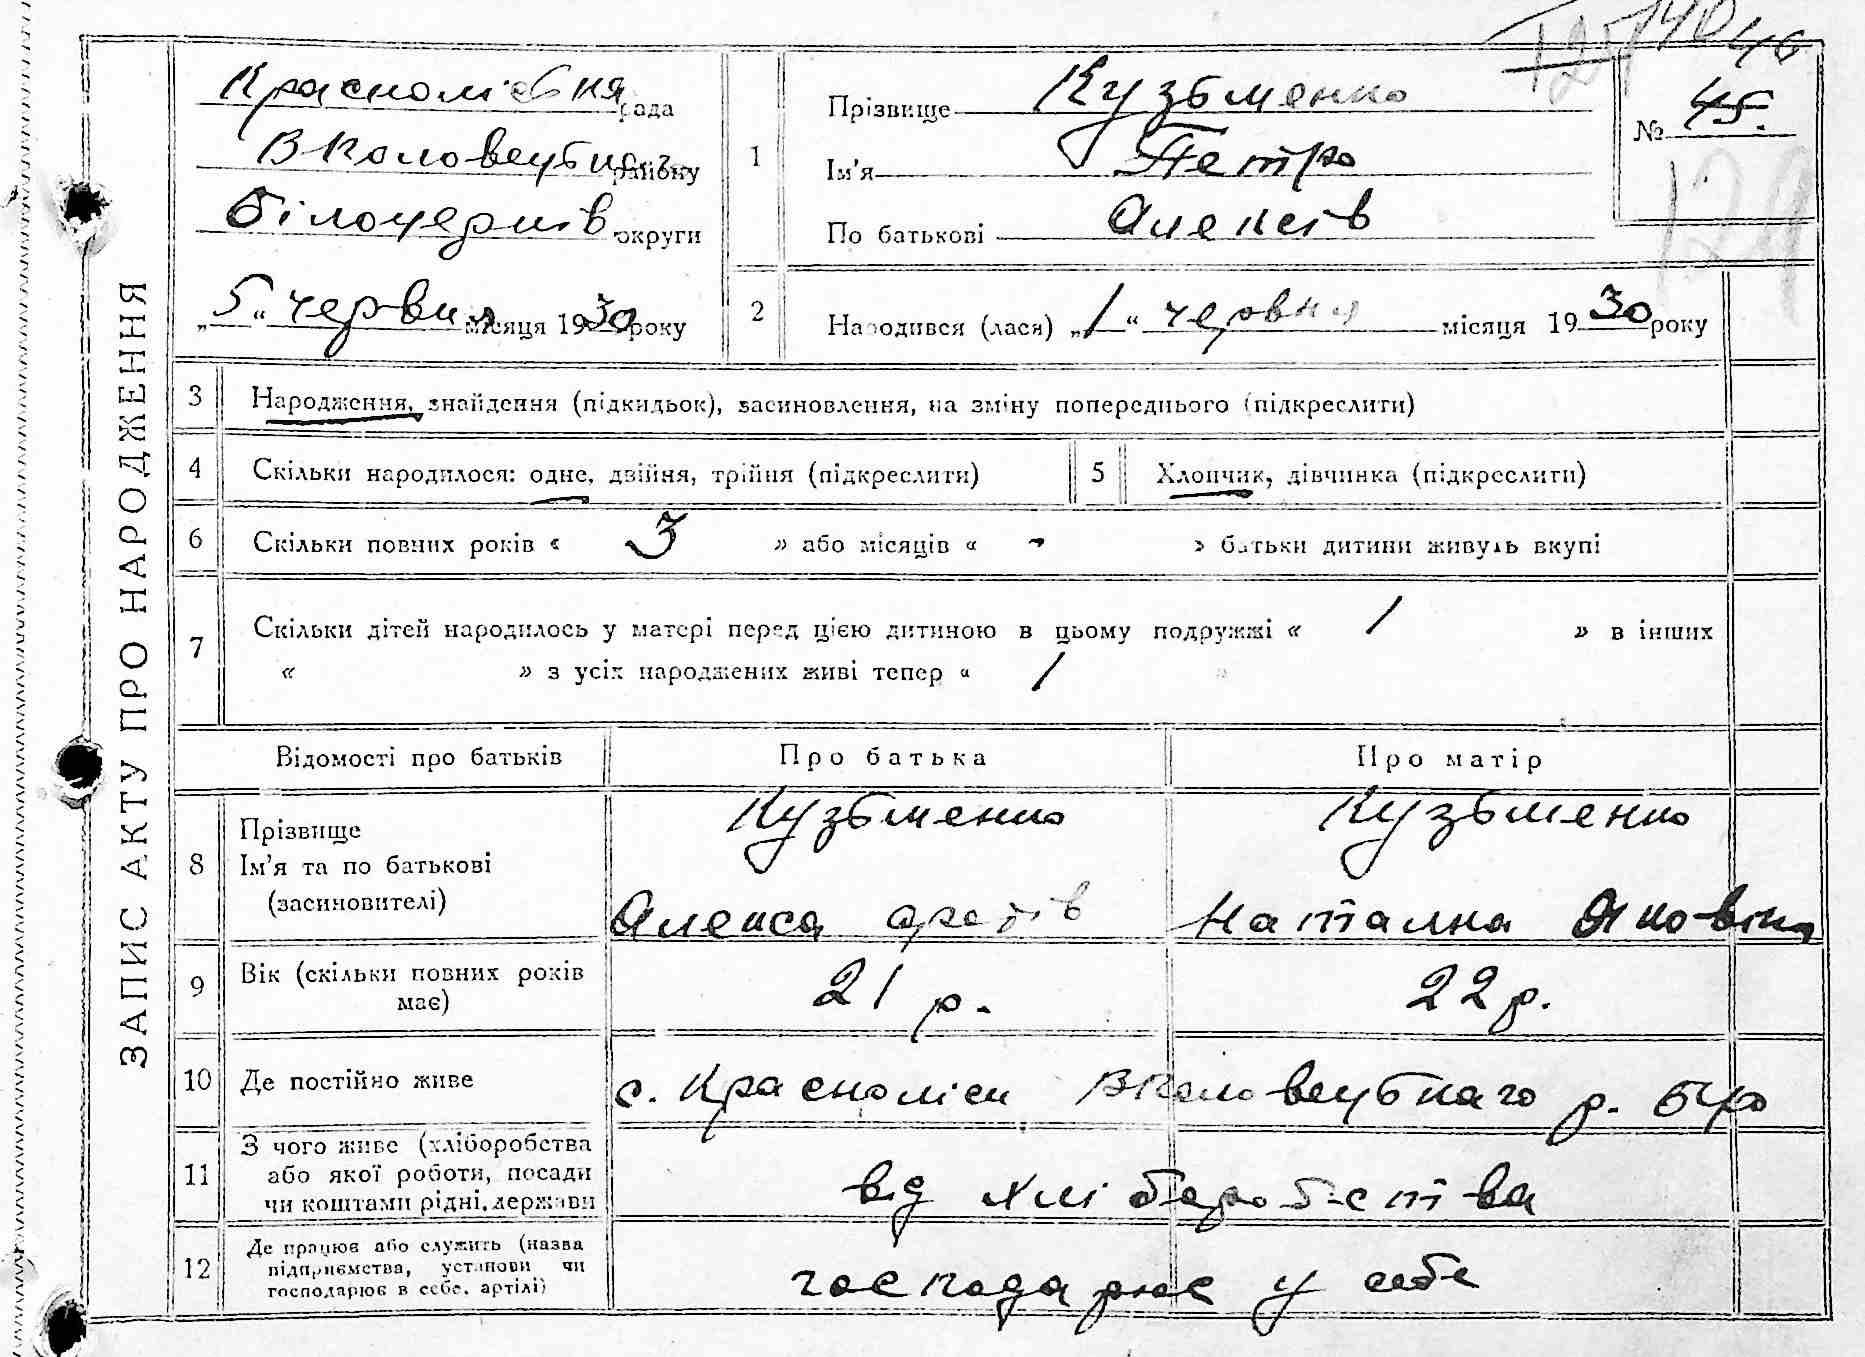 ЗАПИС АКТУ ПРО НАРОДЖЕННЯ
140 46
Красноліська рада
В Половецького району
Білоцерків округи
„5“ червня місяця 1930 року
1
Прізвище Кузьменко
Ім’я Петро
По батькові Олексів
№ 45.
129
2
Народився (лася) „1“ червня місяця 1930 року
3 Народження, знайдення (підкидьок), засиновлення, на зміну попереднього (підкреслити)
4 Скільки народилося: одне, двійня, трійня (підкреслити) 5 Хлопчик, дівчинка (підкреслити)
6 Скільки повних років « 3 » або місяців « - » батьки дитини живуть вкупі
7 Скільки дітей народилось у матері перед цією дитиною в цьому подружжі « 1 » в інших
« » з усіх народжених живі тепер « 1 »
Відомості про батьків Про батька Про матір
8 Прізвище Кузьменко Кузьменко
Ім’я та по батькові
(засиновителі) Олекса Наталка Яковівна
9 Вік (скільки повних років має) 21 р. 22 р.
10 Де постійно живе с. Красноліси р. БЦро
11 З чого живе (хліборобства
або якої роботи, посади
чи коштами рідні, держави від хліборобства
12 Де працює або служить (назва
підприємства, установи чи
господарює в себе, артілі) господарює у себе